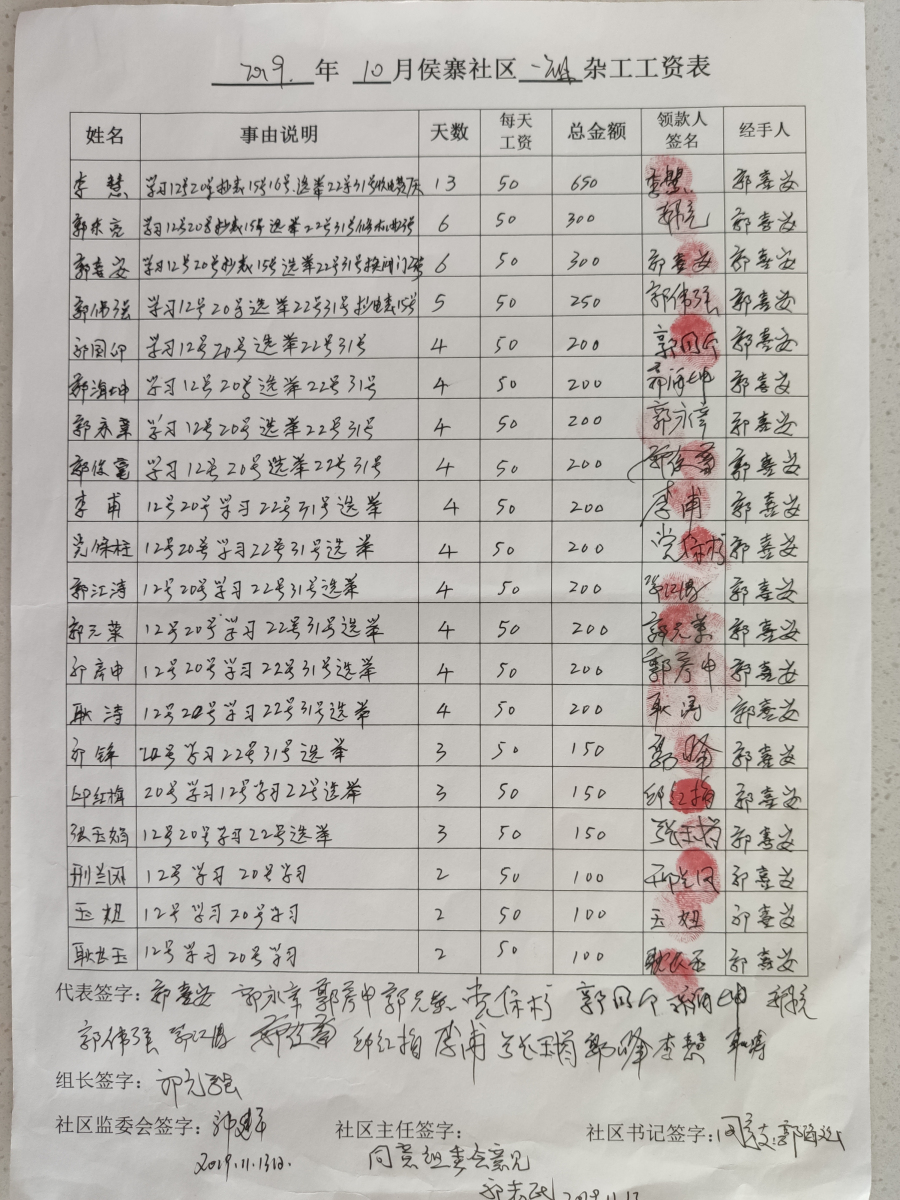 2019. 年 10 月侯寨社区 一组 杂工工资表
姓名 事由说明 天数 每天工资 总金额 领款人签名 经手人
李慧 学习12号20号抄表15号16号.选举22号31号 13 50 650 李慧 郭喜安
郭东亮 学习12号20号抄表15号选举22号31号 6 50 300 郭喜安
郭喜安 学习12号20号抄表15号选举22号31号换阀门 6 50 300 郭喜安 郭喜安
郭伟强 学习12号20号选举22号31号抄电表15号 5 50 250 郭伟强 郭喜安
郭国卯 学习12号20号选举22号31号 4 50 200 郭喜安
郭海坤 学习12号20号选举22号31号 4 50 200 郭海坤 郭喜安
郭永章 学习12号20号选举22号31号 4 50 200 郭永章 郭喜安
郭俊 学习12号20号选举22号31号 4 50 200 郭俊 郭喜安
李甫 12号20号学习22号31号选举 4 50 200 李甫 郭喜安
党保柱 12号20号学习22号31号选举 4 50 200 党保柱 郭喜安
郭江涛 12号20号学习22号31号选举 4 50 200 郭江涛 郭喜安
郭元荣 12号20号学习22号31号选举 4 50 200 郭元荣 郭喜安
郭彦申 12号20号学习22号31号选举 4 50 200 郭彦申 郭喜安
耿涛 12号20号学习22号31号选举 4 50 200 耿涛 郭喜安
郭锋 20号学习22号31号选举 3 50 150 郭喜安
邱红梅 20号学习12号学习22号选举 3 50 150 邱红梅 郭喜安
张玉娟 12号20号学习22号选举 3 50 150 张玉娟 郭喜安
邢兰凤 12号学习20号学习 2 50 100 邢兰凤 郭喜安
玉妞 12号学习20号学习 2 50 100 玉妞 郭喜安
耿玉 12号学习20号学习 2 50 100 郭喜安
代表签字: 郭喜安 郭永章 郭彦申 郭元荣 党保柱 郭国卯 郭海坤
郭伟强 郭江涛 郭俊 邱红梅 李甫 张玉娟 郭峰 李慧 耿涛
组长签字: 郭元强
社区监委会签字: 社区主任签字: 社区书记签字: 同意支:郭海
2019.11.13日. 同意组委会意见
2019.11.13